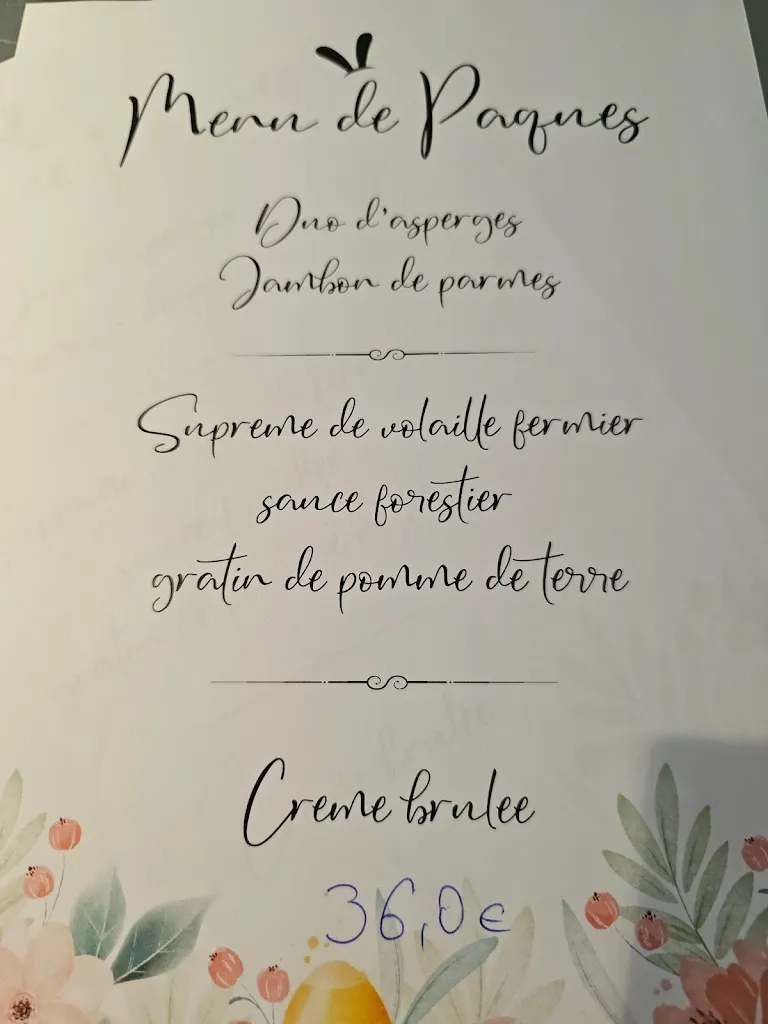 Menu de Paques
Duo d'asperges
Jambon de parmes
Supreme de volaille fermier
sauce forestier
gratin de pomme de terre
Creme brulee
36,0€